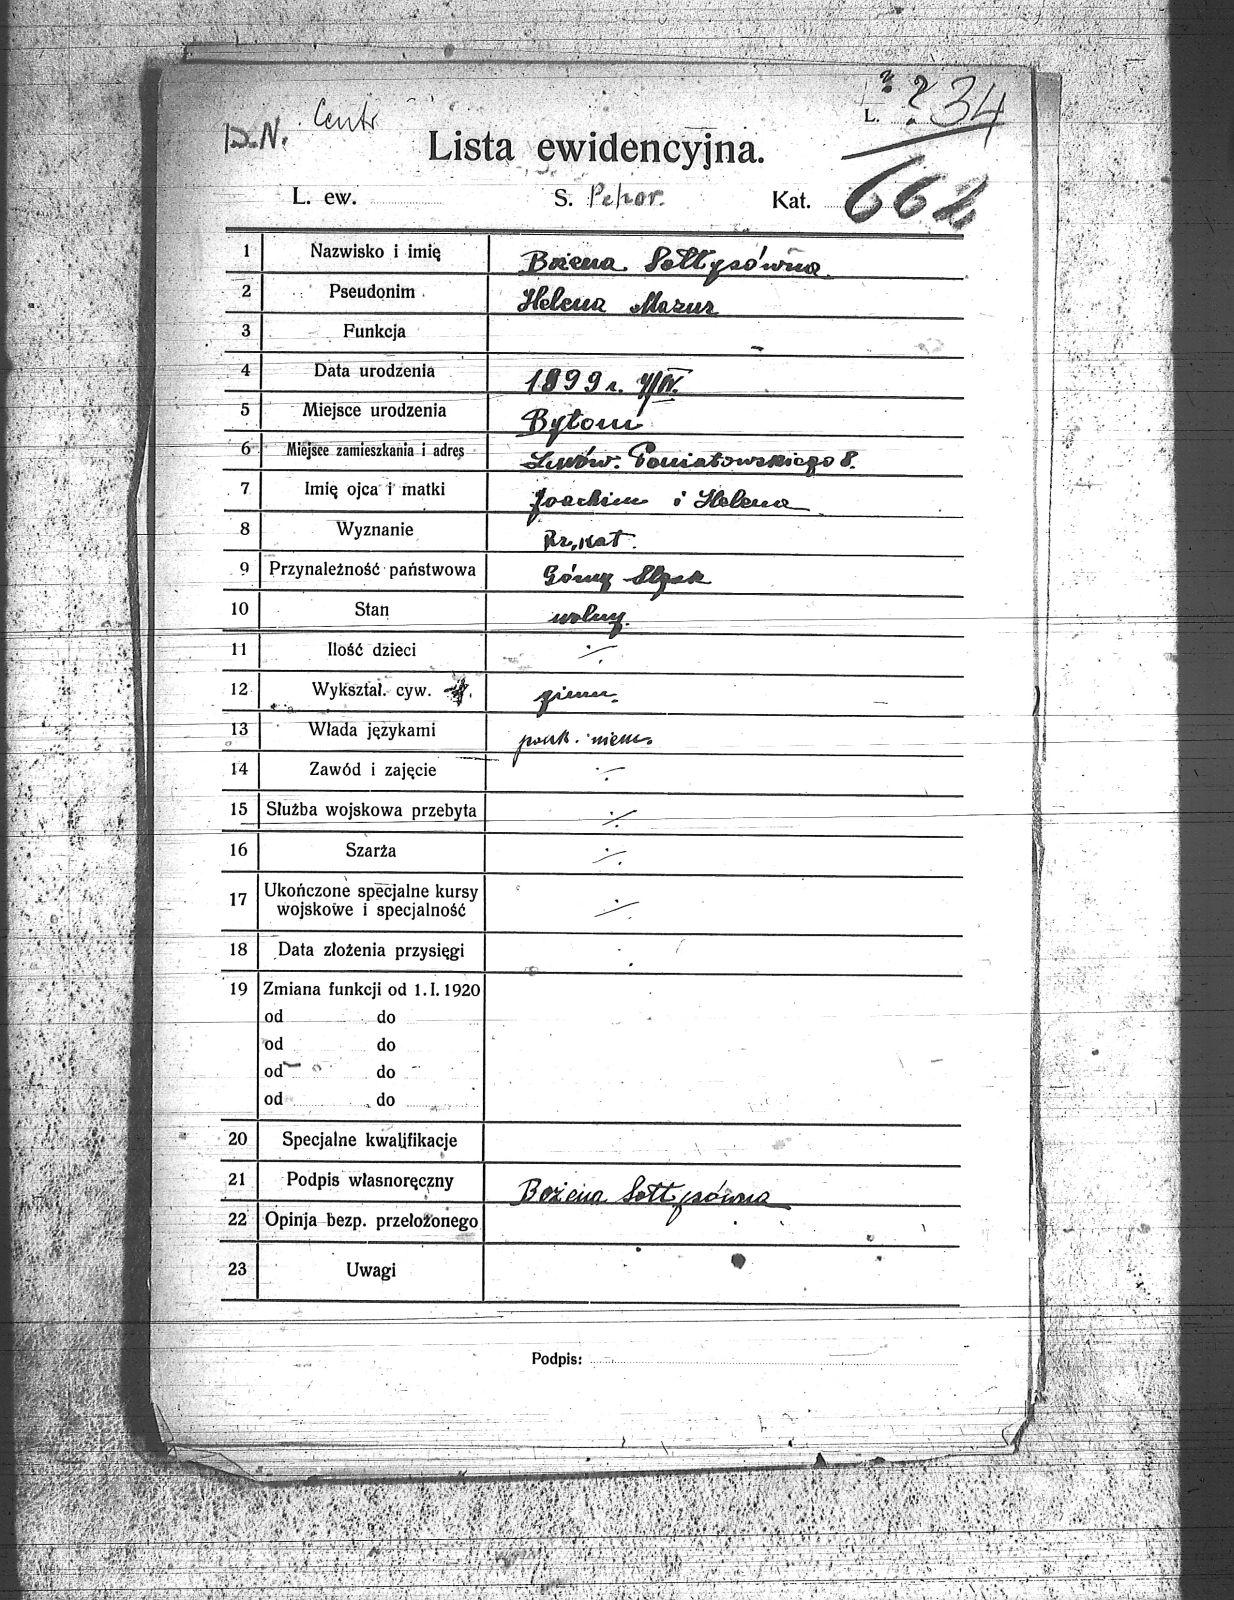 D.N. Centr
L. ? 34
Lista ewidencyjna.
662
L. ew. S. Kat.
1 Nazwisko i imię Bożena Sołtysówna
2 Pseudonim Helena Mazur
3 Funkcja
4 Data urodzenia 1899 r.
5 Miejsce urodzenia Bytom
6 Miejsce zamieszkania i adres Lwów. Poniatowskiego 8.
7 Imię ojca i matki Joachim i Helena
8 Wyznanie Rz, kat.
9 Przynależność państwowa Górny Śląsk
10 Stan wolny.
11 Ilość dzieci ·/.
12 Wykształ. cyw. gimn.
13 Włada językami polsk. niem.
14 Zawód i zajęcie ·/.
15 Służba wojskowa przebyta ·/.
16 Szarża ·/.
17 Ukończone specjalne kursy
wojskowe i specjalność ·/.
18 Data złożenia przysięgi
19 Zmiana funkcji od 1. I. 1920
od do
od do
od do
od do
20 Specjalne kwalifikacje
21 Podpis własnoręczny Bożena Sołtysówna
22 Opinja bezp. przełożonego
23 Uwagi
Podpis: